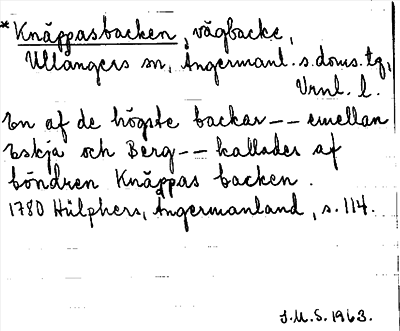 *Knäppasbacken, vägbacke,
Ullångers sn, Ångermanl. s. doms. tg,
Vrnl. l.
En af de högste backar -- emellan
Eskja och Berg -- kallades af
böndren Knäppas backen.
1780 Hülphers, Ångermanland, s. 114.
J.M.S. 1963.